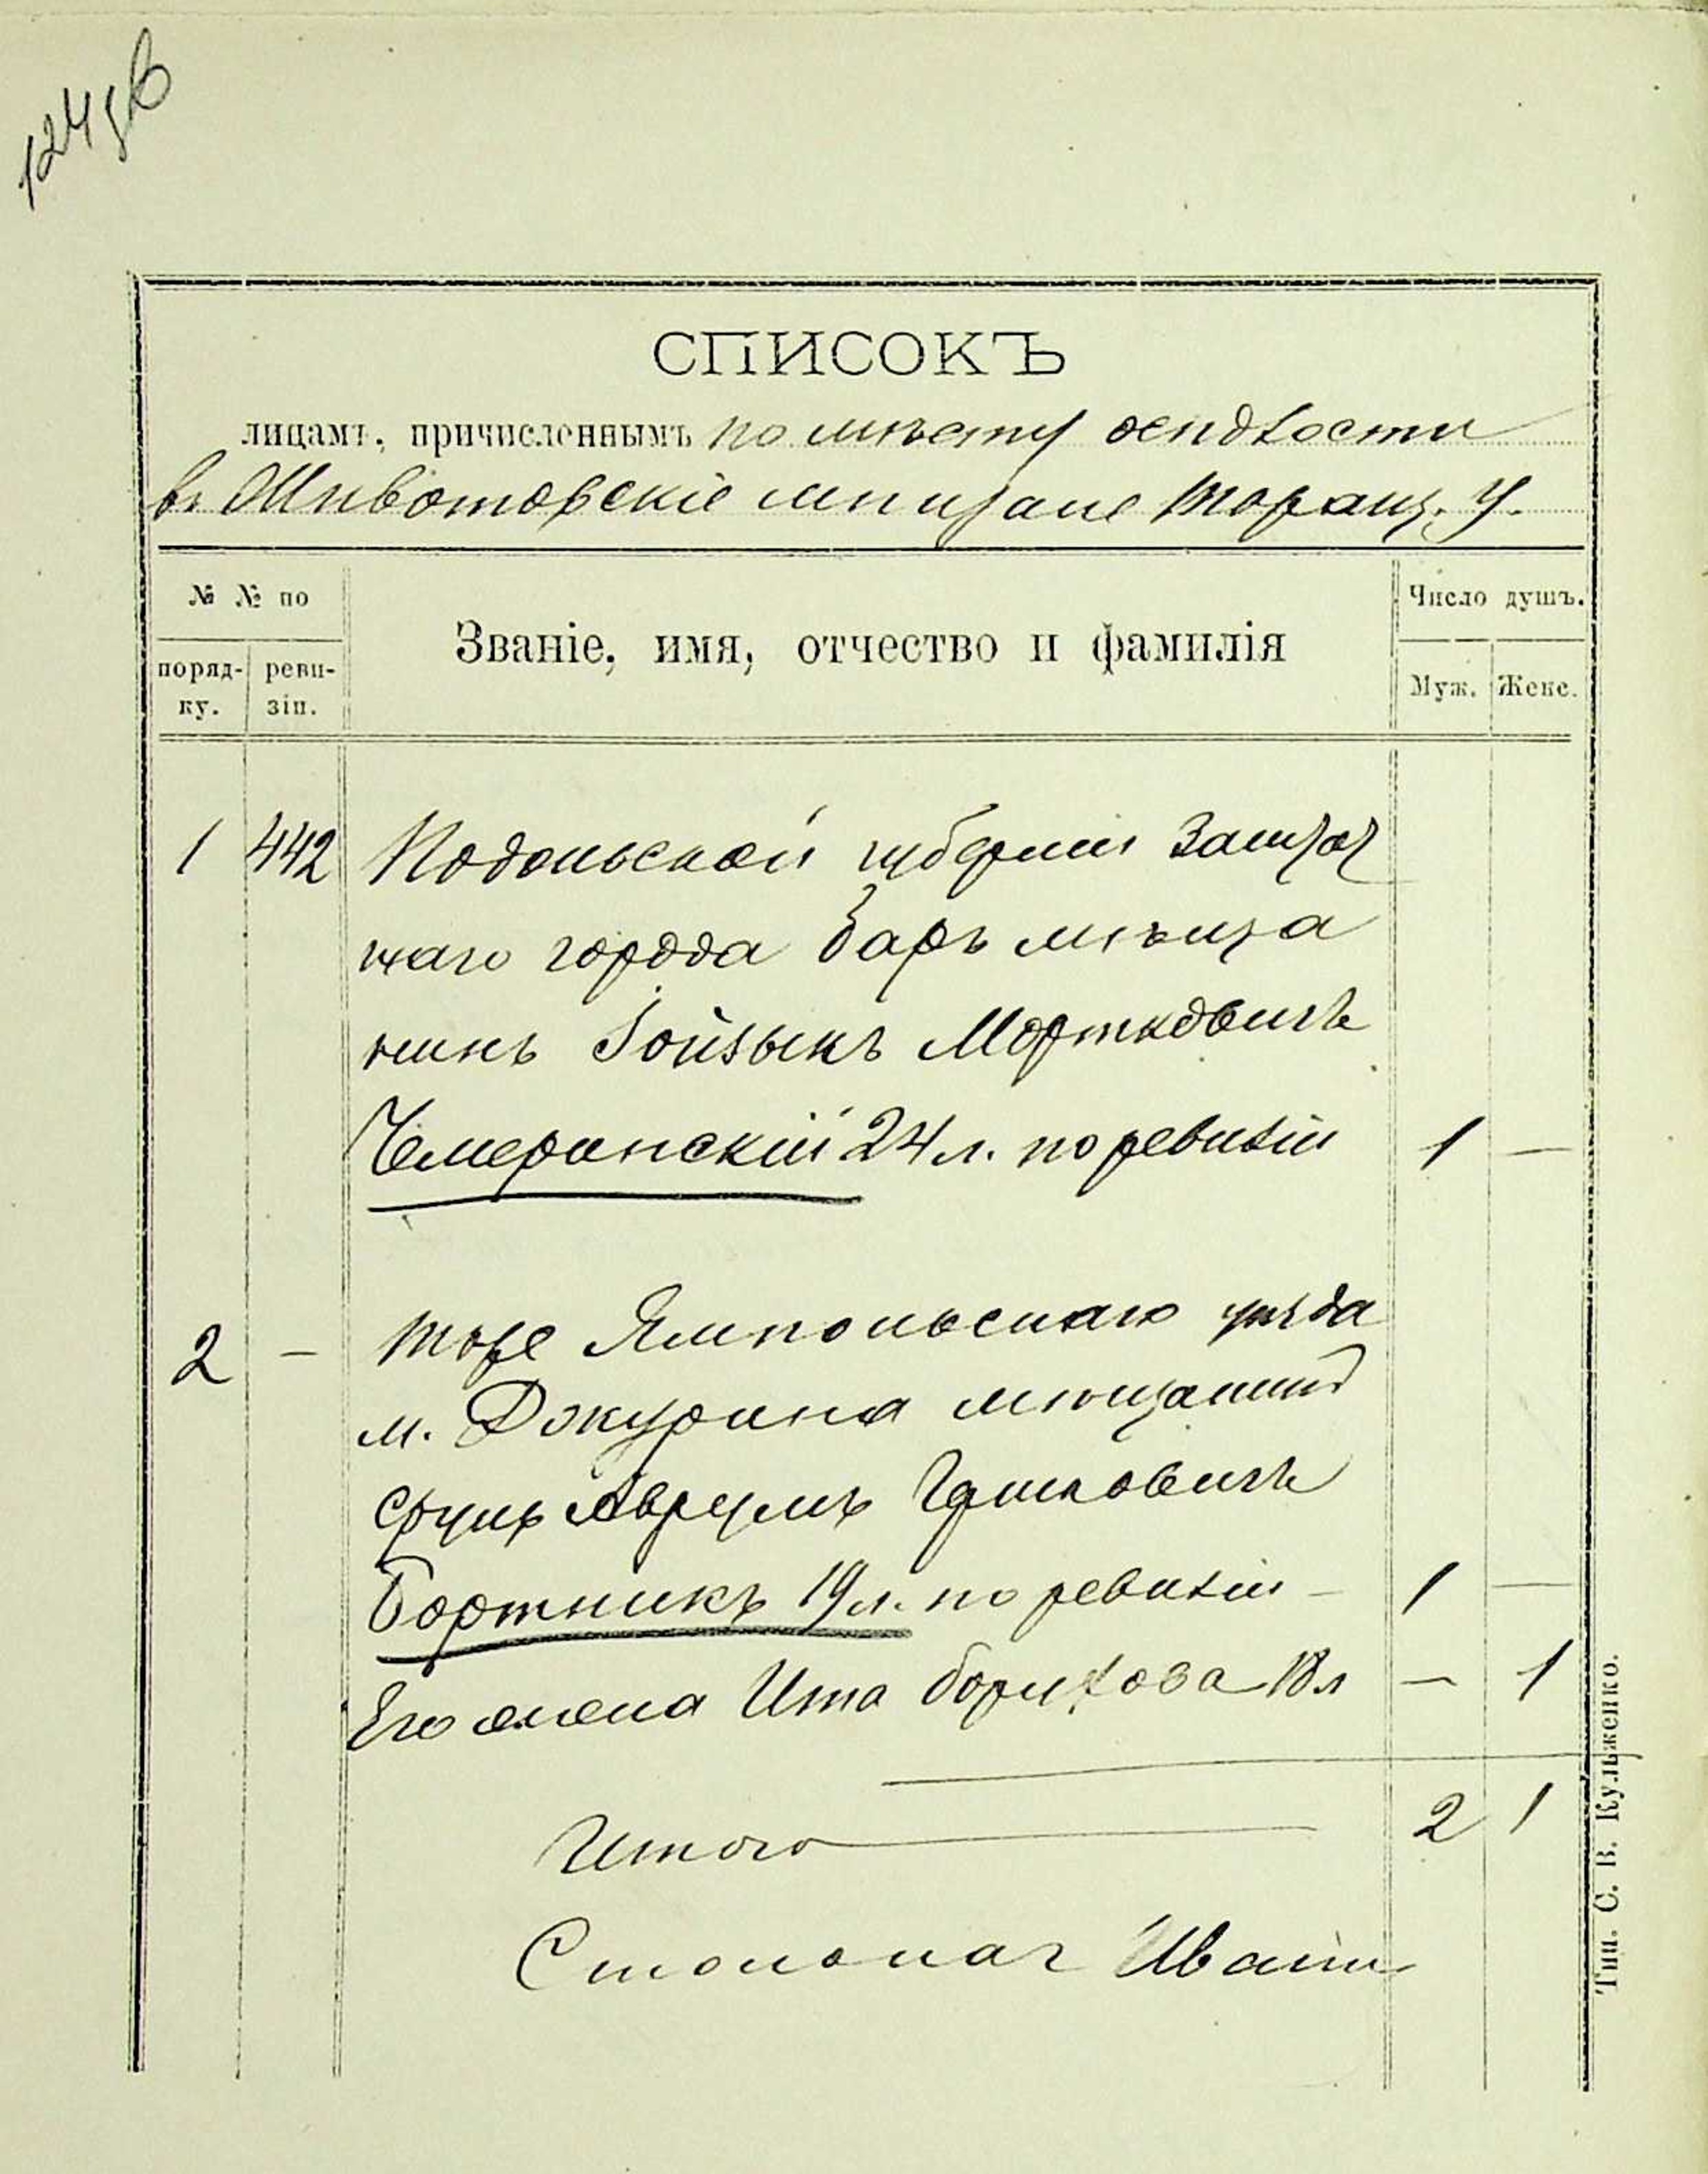 СПИСОКЪ
лицамъ, причисленнымъ по мѣсту осѣдлости
въ Животовскіе мѣщане Таращ. У.
№ № по
поряд-
ку.
реви-
зіи.
Званіе, имя, отчество и фамилія
Число душъ.
Муж. Женс.
1 442 Подольской губерніи Заштат
наго города Баръ мѣща
нинъ Іойзыкъ Мортковичъ
Чемеринскій 24 л. по ревизіи 1 —
2 — Тоже Ямпольскаго уѣзда
м. мѣщанинъ
Сруль Аврумъ Гершковичъ
Бортникъ 19 л. по ревизіи — 1 —
Его жена Ита Борухова 18 л — 1
Итого 2 1
Столонач
Тип. С. В. Кульженко.